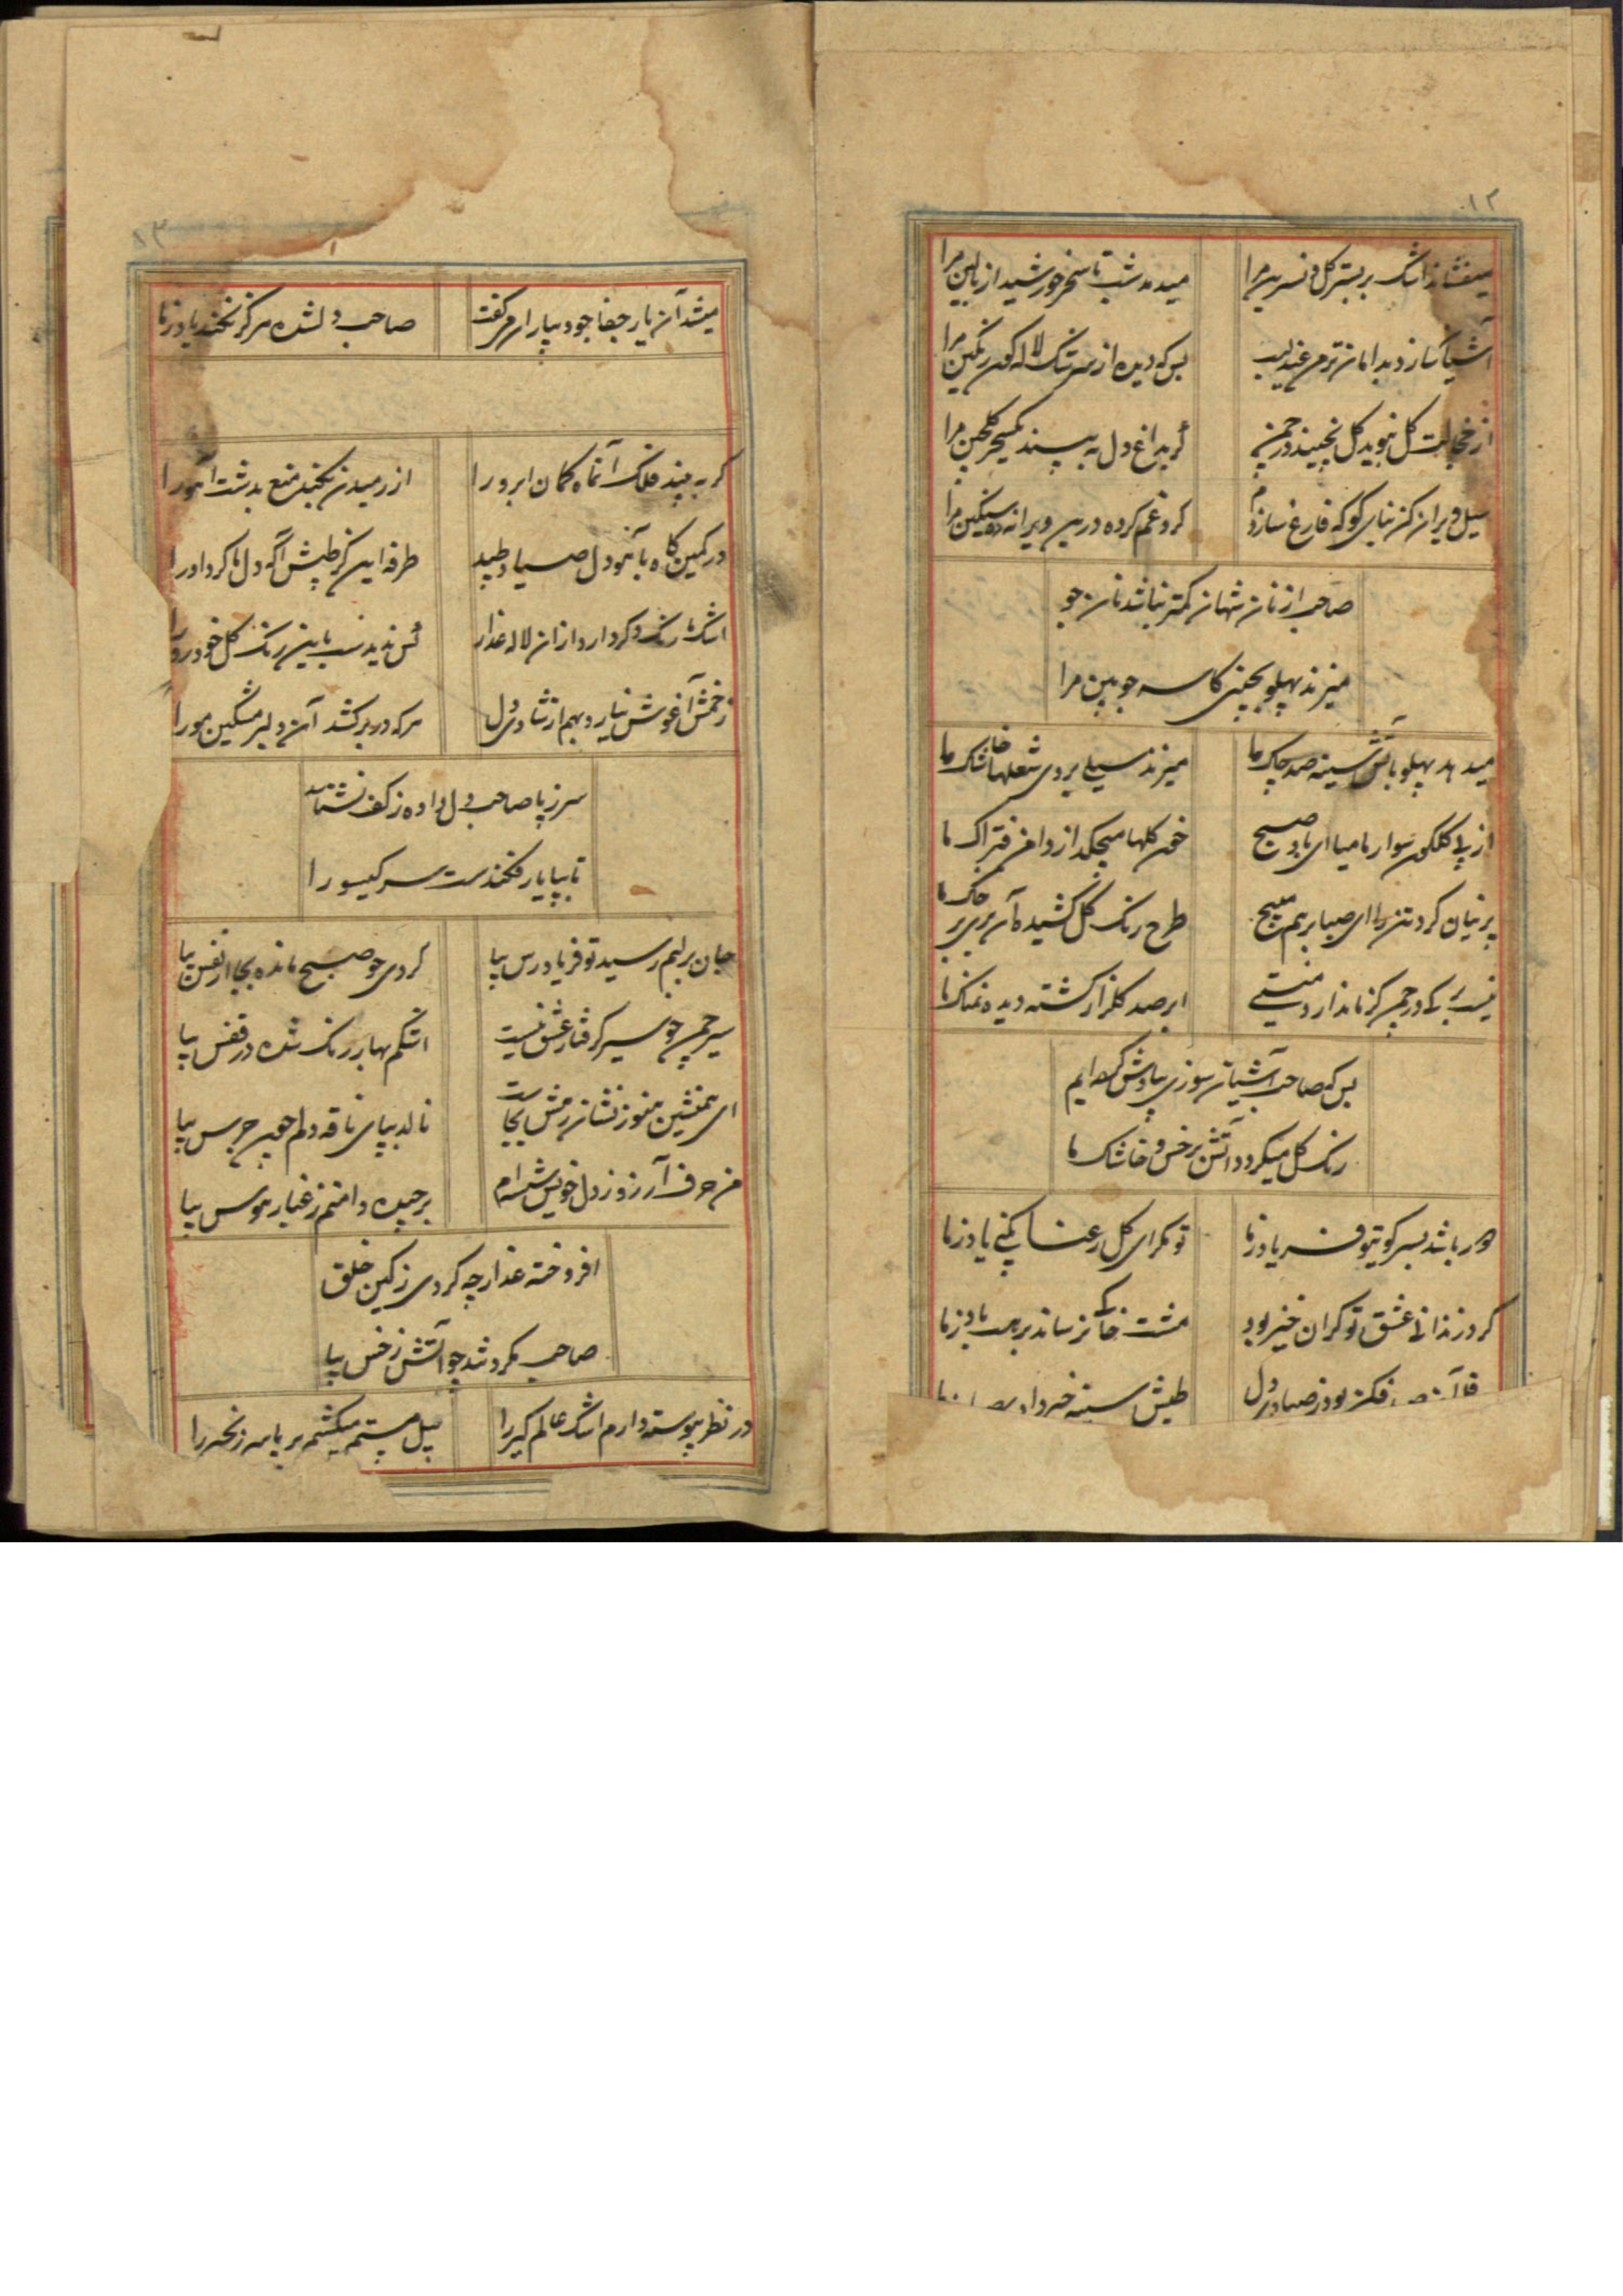 ۱۲
میفشاند اشک بر بستر گل و نسرین مرا
میدمد شب تا سحر خورشید از بالین مرا
آشیان سازد بدامان ترم عندلیب
بس که دیده از سرشک لاله گون رنگین مرا
از خجالت گل نبوید گل نچیند در چمن
گر بداغ دل به بیند یکسحر گلچین مرا
سیل ویران کن بنای کو که فارغ سازدم
گرد غم کرده درین ویرانه سنگین مرا
صاحب از نان شهان کمتر نباشد نان جو
میزند پهلو بچینی کاسه چوبین مرا
میدهد پهلو باتش سینه صد چاک ما
میزند سیلی بروی شعلها خاشاک ما
از پی گلگون سوار ما میا ای باد صبح
خون گلها میچکد از دامن فتراک ما
پرنیان گرد تن را ای صبا برهم مپیچ
طرح رنگ گل کشیده آن پری بر خاک ما
نیست برگی در چمن کز ما ندارد منتی
ابر صد گلزار گشته دیده نمناک ما
بس که صاحب آشیان سوزی بیادش کرده ایم
رنگ گل میگردد آتش بر خس و خاشاک ما
باشد بسر کوی تو فریاد ز ما
تو مگر ای گل رعنا نکنی یاد ز ما
گرد زندانی عشق تو گران خیز بود
مشت خاکی نرساند بریت باد ز ما
طپش سینه خبر داد
۱۳
میشد آن یار جفا جو و بیاران میگفت
صاحب دلشده هرگز نکند یاد ز ما
گر به بیند فلک آنماه کمان ابرو را
از رمیدن نکند منع بدشت آهو را
در کمین گاه بآهو دل صیاد طپید
طرفه این کز طپش آگه دل ما کرد او را
اشک ما رنگ دگر دارد از ان لاله عذار
کس ندیدست باین رنگ گل خودرو را
زخمش آغوش نیارد بهم از شادی دل
هر که در بر کشد آن دلبر مشکین مو را
سر ز پا صاحب دل داده ز کف نشناسد
تا بپا یار فکندست سر گیسو را
جان بر لبم رسید تو فریادرس بیا
کردی چو صبح مانده بجا از نفس بیا
سیر چمن چو سیر گرفتار عشق نیست
اشکم بهار رنگ شده در قفس بیا
ای همنشین هنوز نشان رمش بجاست
نالد بپای ناقه دلم چون جرس بیا
من حرف آرزو ز دل خویش شسته ام
برچیده دامنم ز غبار هوس بیا
افروخته عذار چه کردی ز کین خلق
صاحب مگر نشد چو آتش ز خس بیا
در نظر پیوسته دارم اشک عالم گیر را
پیل مستم میکشم بر پا سر زنجیر را